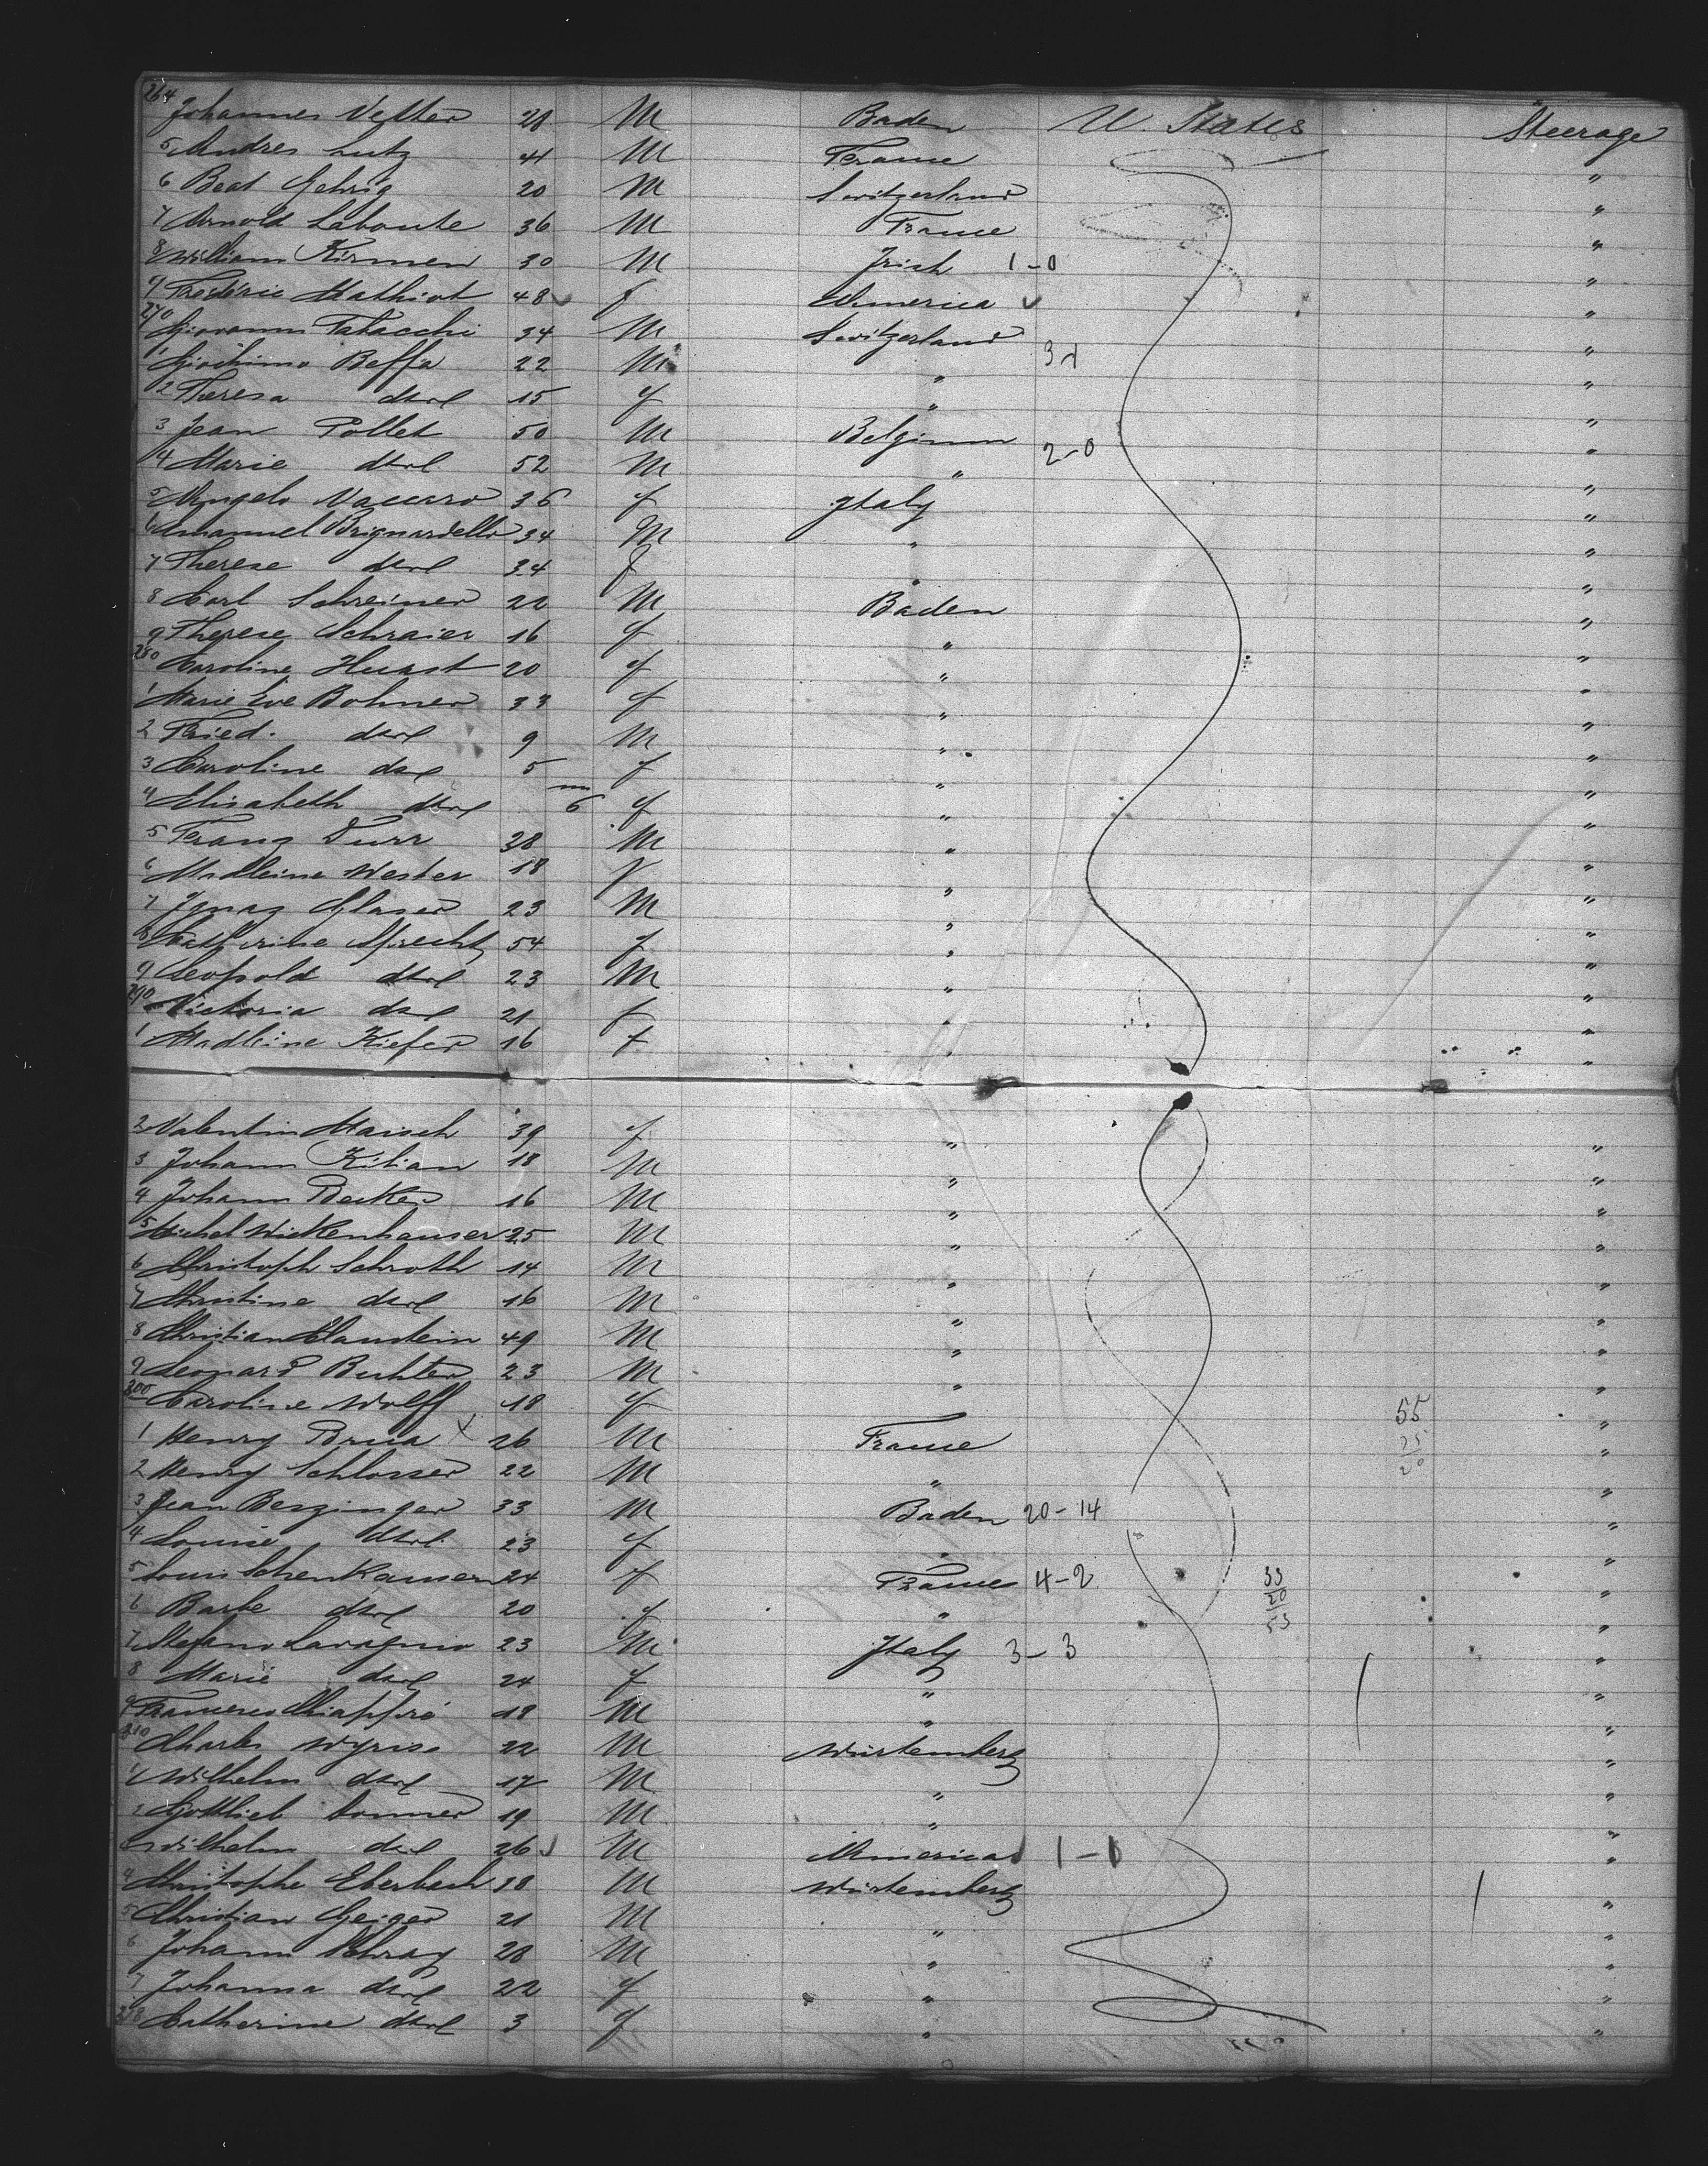 264 Johannes Vetter 28 M Baden U. States Steerage
5 Andres Lutz 41 M France "
6 Beat Gehrig 20 M Switzerland "
7 Arnold Laboute 36 M France "
8 William Kirmen 30 M Irish 1-0 "
9 Frederic Mathiot 48 f America "
270 Giovanni 34 M Switzerland "
1 Beffa 22 M " 3-1 "
2 Theresa dtrl 15 f " "
3 Jean Pollet 50 M Belgium "
4 Marie dtrl 52 M " 2-0 "
5 Angelo Vaccaro 36 f Italy "
6 Emanuel Brignardello 34 M " "
7 Therese dtrl 34 f " "
8 Carl Schreiner 22 M Baden "
9 Therese Schraier 16 f " "
280 Caroline Huast 20 f " "
1 Marie Eve Bohner 33 f " "
2 Fried. dtrl 9 M " "
3 Caroline dtrl 5 f " "
4 Elisabeth dtrl 6 f " "
5 Franz Durr 38 M " "
6 Madleine Wester 18 f " "
7 Ignaz Glaser 23 M " "
8 Catherine Sprecht 54 f " "
9 Leopold dtrl 23 M " "
290 Victoria dtrl 21 f " "
1 Madleine Kiefer 16 f " "
2 Valentin Maisch 39 f " "
3 Johann Kilian 18 M " "
4 Johann Becker 16 M " "
5 Michel Wickenhauser 25 M " "
6 Christoph Schroth 14 M " "
7 Christine dtrl 16 M " "
8 Christian 49 M " "
9 Leonard Buhler 23 M " "
300 Caroline Wolff 18 f 55 "
1 Henry Brua X 26 M France 25 "
2 Henry Schlosser 22 M " 20 "
3 Jean Berzinger 33 M Baden 20-14 "
4 Louise dtrl 23 f " "
5 Louis Schenkauser 24 f France 4-2 33 "
6 Barbe dtrl 20 f " 20 "
7 Stefano Lavagnio 23 M Italy 3-3 53 "
8 Marie dtrl 24 f " "
9 18 M " "
310 Charles 22 M Würtemberg "
1 Wilhelm dtrl 17 M " "
2 Gottlieb 19 M " "
3 Wilhelm dtrl 26 M America 1-1 "
4 Christophe Eberbach 38 M Würtemberg "
5 Christian Geiger 21 M " "
6 Johann Schray 28 M " "
7 Johanna dtrl 22 f " "
318 Catherine dtrl 3 f " "